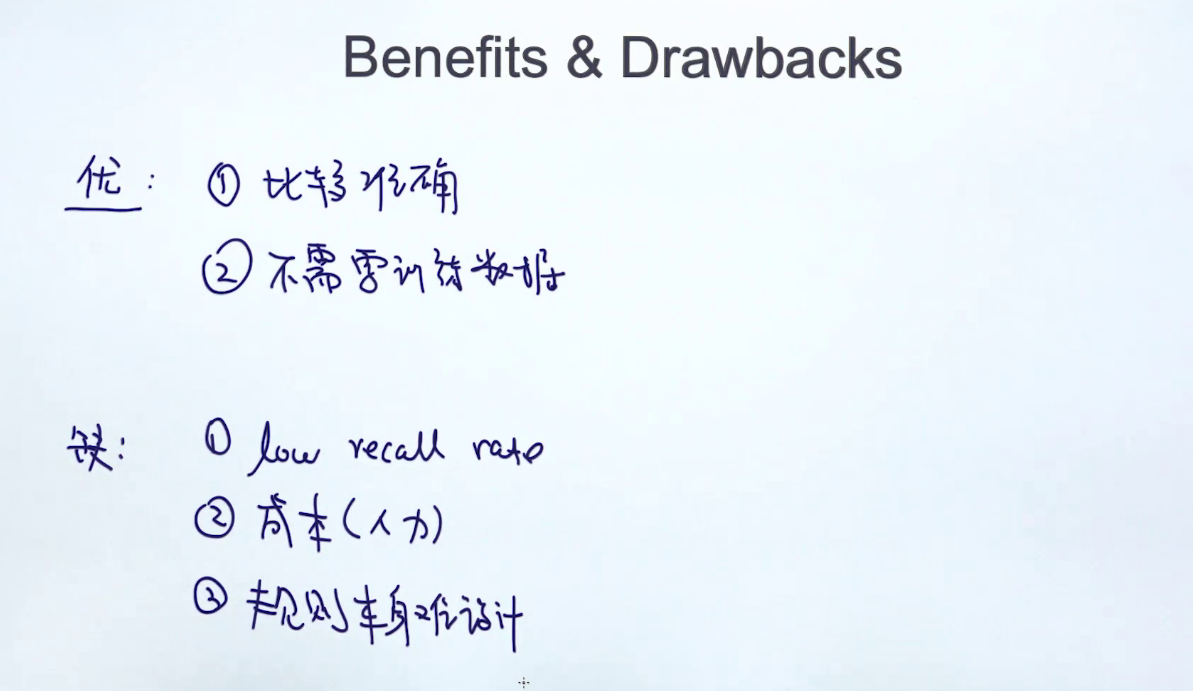 Benefits & Drawbacks
优: ① 比较准确
② 不需要训练数据
缺: ① low recall rate
② 成本(人力)
③ 规则本身难设计